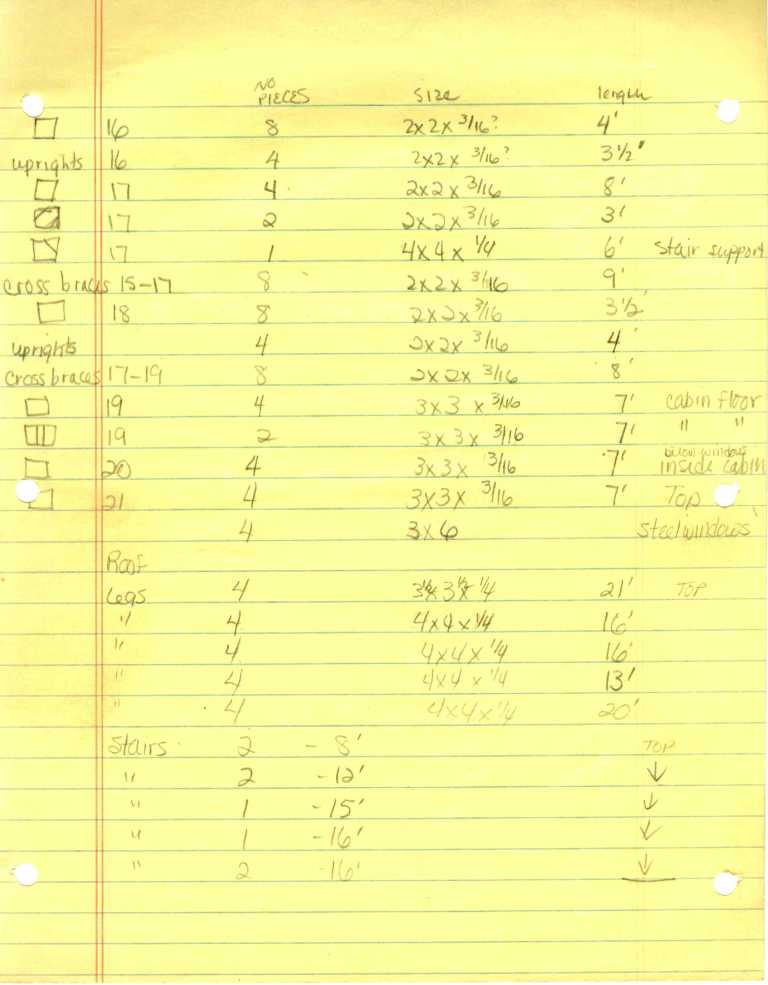 NO PIECES SIZE length
16 8 2x2x 3/16? 4'
uprights 16 4 2x2x 3/16? 3½'
17 4 2x2x 3/16 8'
17 2 2x2x 3/16 3'
17 1 4x4x ¼ 6' Stair support
cross braces 15-17 8 2x2x 3/16 9'
18 8 2x2x 3/16 3½'
uprights 4 2x2x 3/16 4'
cross braces 17-19 8 2x2x 3/16 8'
19 4 3x3 x 3/16 7' cabin floor
19 2 3x3x 3/16 7' " "
20 4 3x3x 3/16 7' below windows inside cabin
21 4 3x3x 3/16 7' Top
4 3x6 Steel windows
Roof
Legs 4 3½x3½x ¼ 21' TOP
" 4 4x4x ¼ 16'
" 4 4x4x ¼ 16'
" 4 4x4 x ¼ 13'
" 4 4x4x ¼ 20'
Stairs 2 - 8' TOP
" 2 -12' ↓
" 1 -15' ↓
" 1 -16' ↓
" 2 -16' ↓